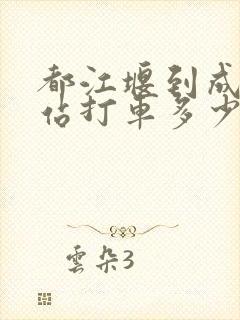 都江堰到成
佔打車多少
雲朵3